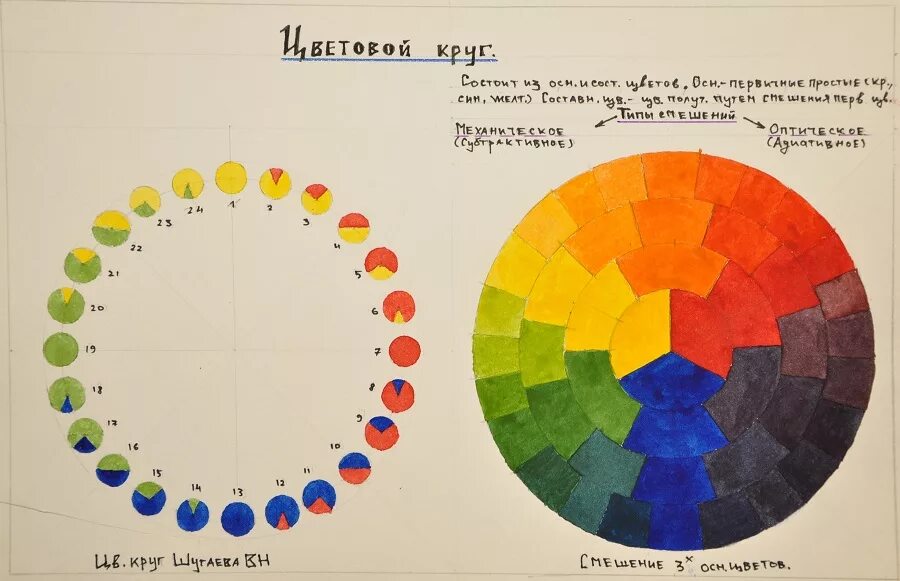 Цветовой круг.
Состоит из осн. и сост. цветов. Осн.- первичные простые (кр.,
син, желт.) Составн. цв.- цв. получ. путем смешения перв цв.
Типы смешений
Механическое
(Субтрактивное)
Оптическое
(Адиативное)
1
2
3
4
5
6
7
8
9
10
11
12
13
14
15
16
17
18
19
20
21
22
23
24
Цв. круг Шугаева ВН
Смешение 3х осн. цветов.